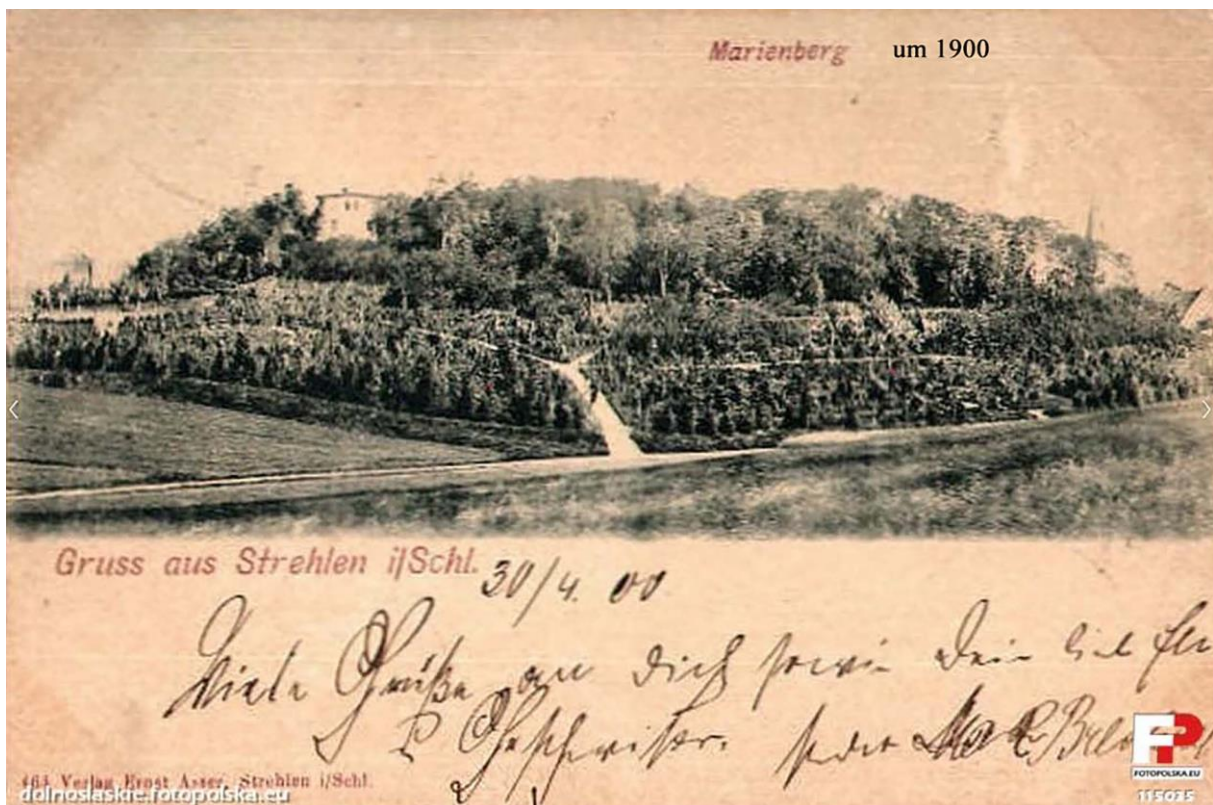 Marienberg um 1900
Gruss aus Strehlen i/Schl. 30/4. 00
Viele Grüße an Dich sowie Dein
Geschwister.
463 Verlag Ernst Asser, Strehlen i/Schl.
dolnoslaskie.fotopolska.eu
FP
FOTOPOLSKA.EU
115035